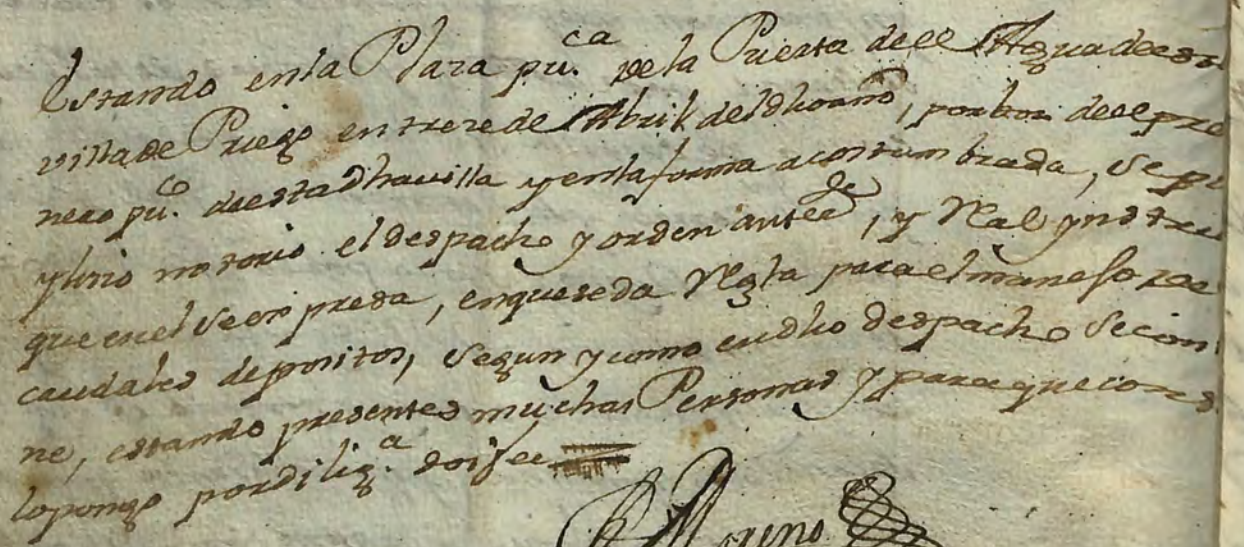 Estando en la Plaza pu.ca de la Puerta del Agua de esta
villa de Priego en treze de Abril del dho año, por boz del pre
nero pu.co de esta dha villa y en la forma acostumbrada, se pu
blico notorio el despacho y orden anteede, y Real ynstru
que en el se expresa, en que se da Regla para el manejo de
caudales de positos, segun y como en dho despacho se con
ne, estando presentes muchas Personas y para que cons
lo pongo por dilig.a doi fee
Moreno